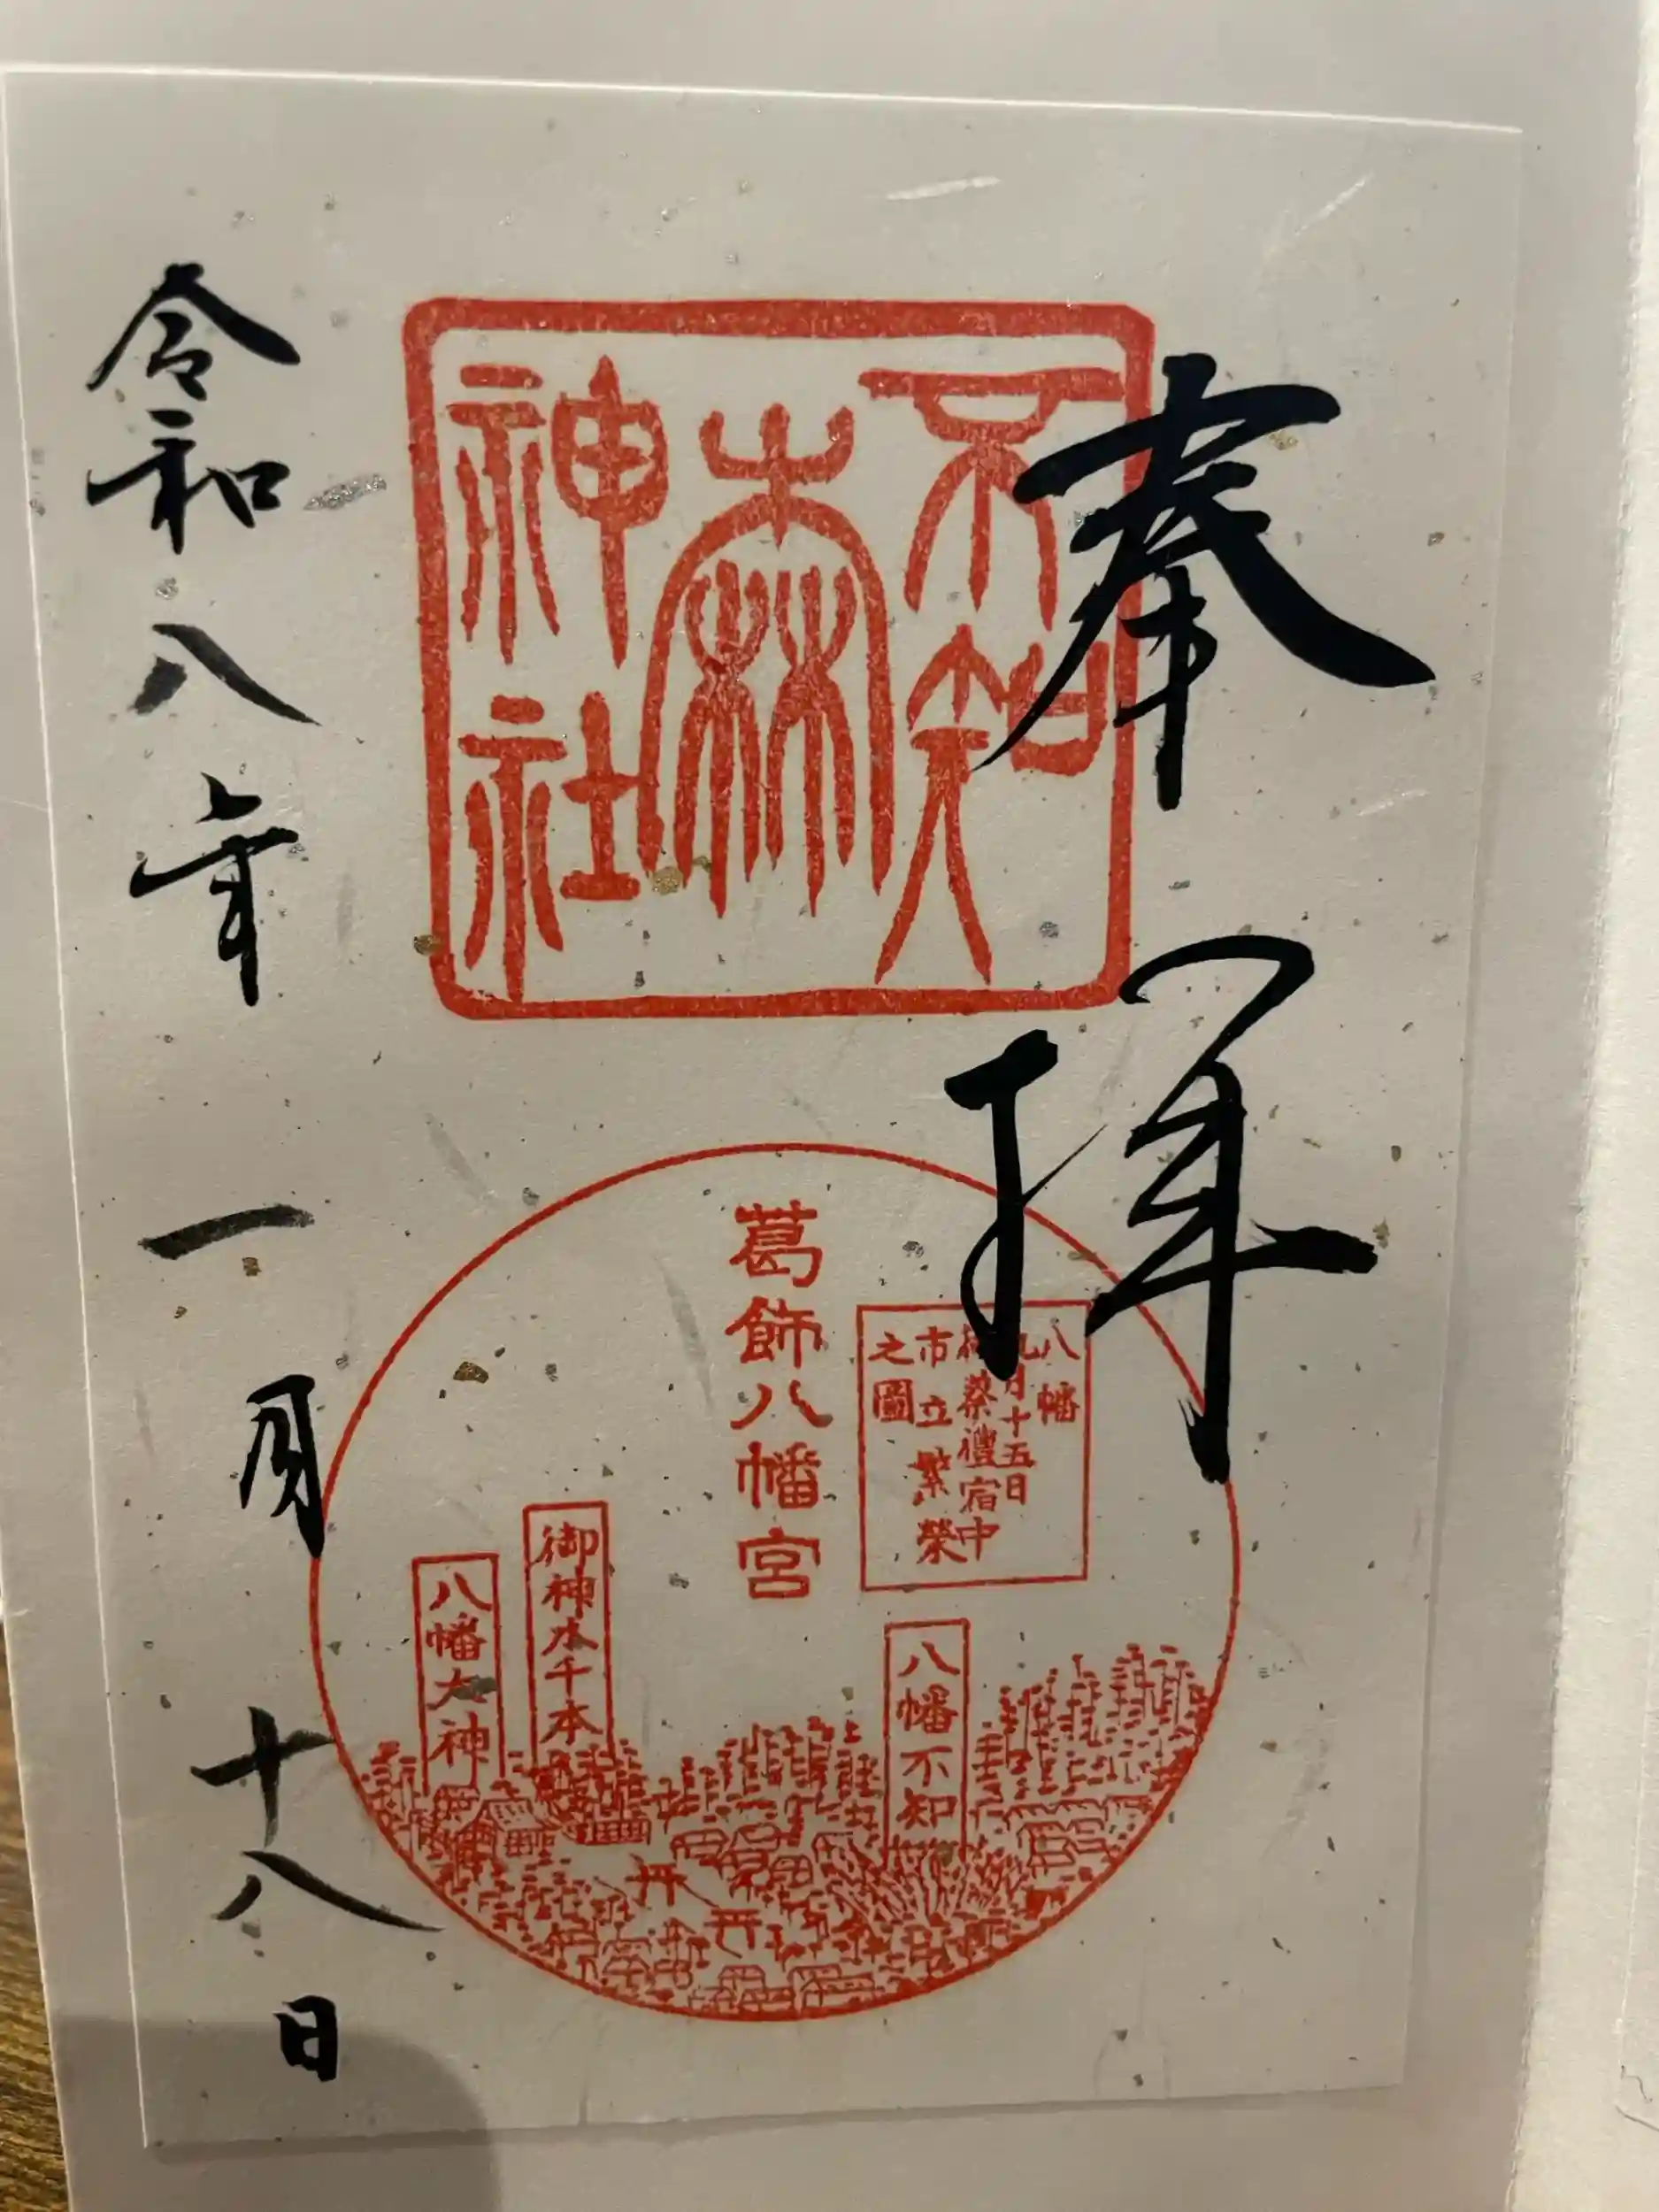 奉拝
不知
森
神社
葛飾八幡宮
八幡
九月十五日
祭禮宿中
市立繁榮
之圖
八幡不知
御神木千本
八幡大神
令和八年一月十八日